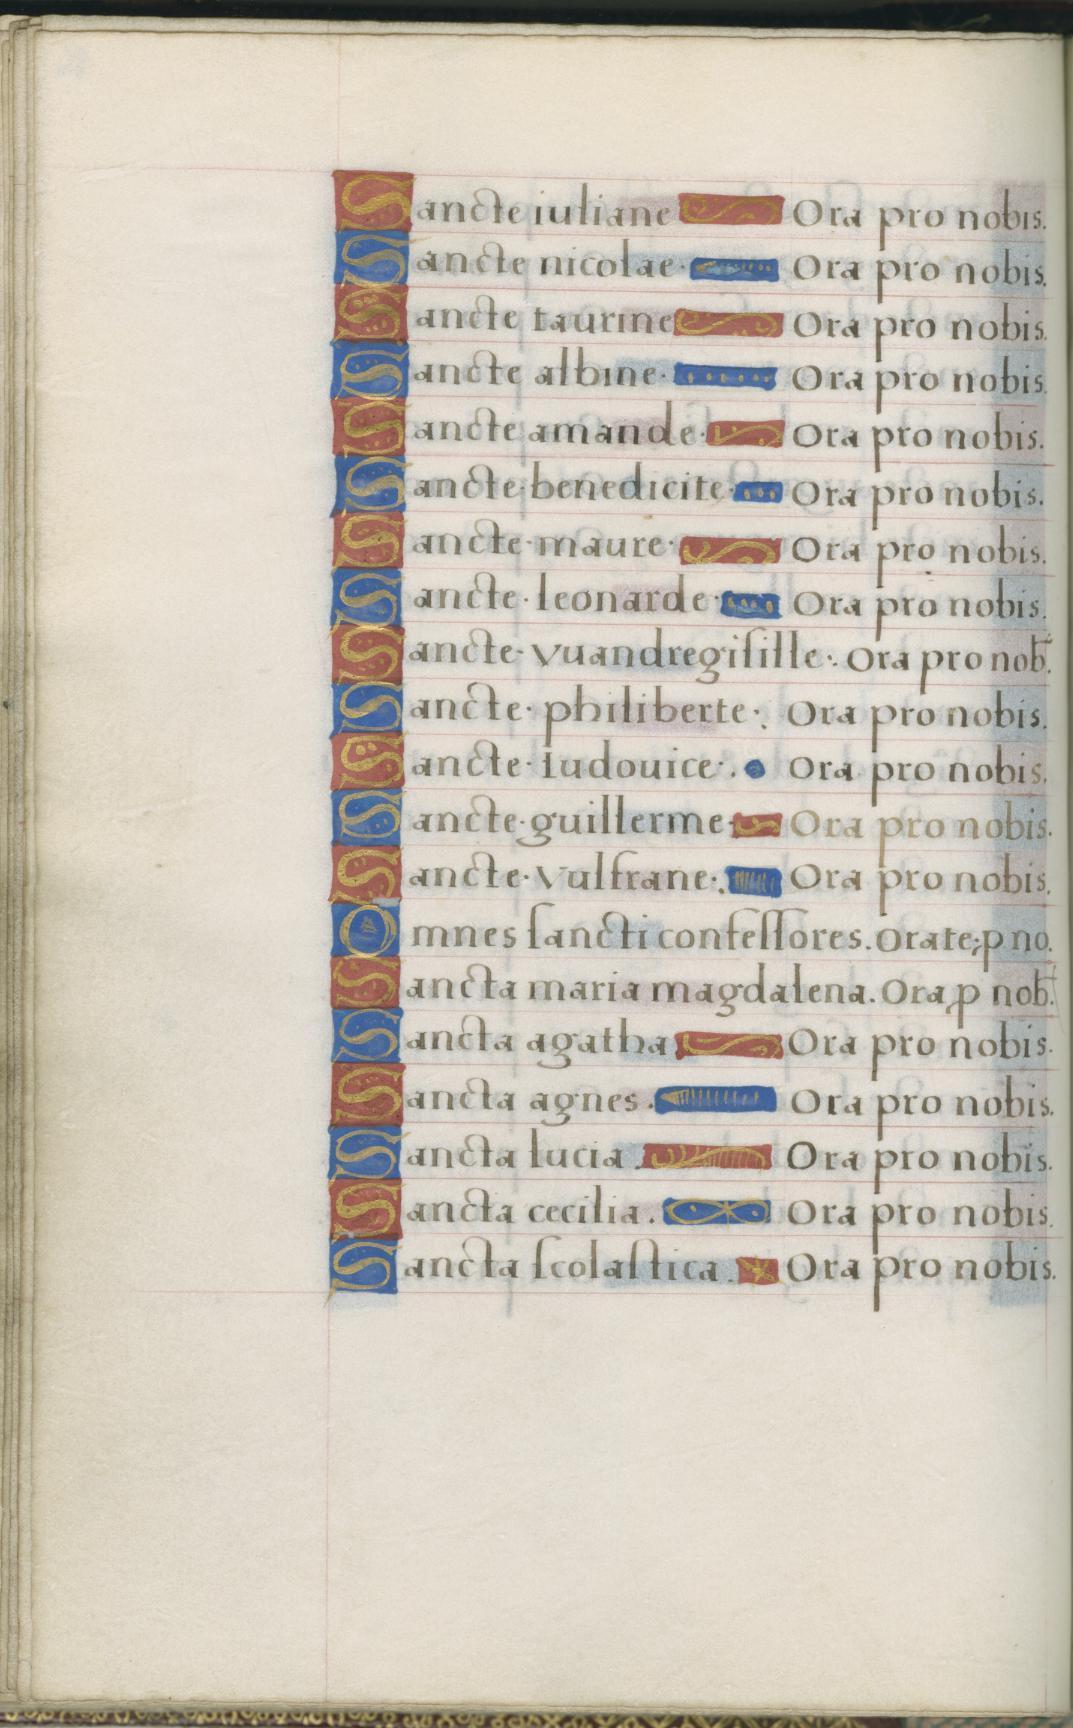 Sancte iuliane Ora pro nobis.
Sancte nicolae· Ora pro nobis.
Sancte taurine Ora pro nobis.
Sancte albine· Ora pro nobis.
Sancte amande· Ora pro nobis.
Sancte·benedicite· Ora pro nobis.
Sancte·maure· Ora pro nobis.
Sancte·leonarde· Ora pro nobis.
Sancte·vuandregiſille·. Ora pro nob̄.
Sancte·philiberte·. Ora pro nobis.
Sancte·ludouice·. Ora pro nobis.
Sancte·guillerme· Ora pro nobis.
Sancte·vulfrane·. Ora pro nobis.
Omnes ſancti confeſſores. Orate; ꝓ no.
Sancta maria magdalena. Ora ꝓ nob̄.
Sancta agatha Ora pro nobis.
Sancta agnes. Ora pro nobis.
Sancta lucia. Ora pro nobis.
Sancta cecilia. Ora pro nobis.
Sancta ſcolaſtica. Ora pro nobis.